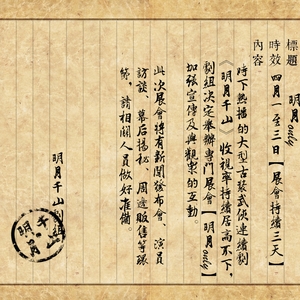 標題 明月only
時效 四月一至三日【展會持續三天】
內容
時下熱播的大型古裝武俠連續劇
〈明月千山〉收視率持續居高不下,
劇組決定舉辦專門展會【明月only】
加強宣傳及與觀眾的互動。
此次展會將有新聞發布會、演員
訪談、幕后揭秘、周邊販售等環
節,請相關人員做好準備。
明月千山劇組
千山
明月